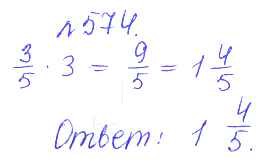 №574.
3/5 · 3 = 9/5 = 1 4/5
Ответ: 1 4/5.